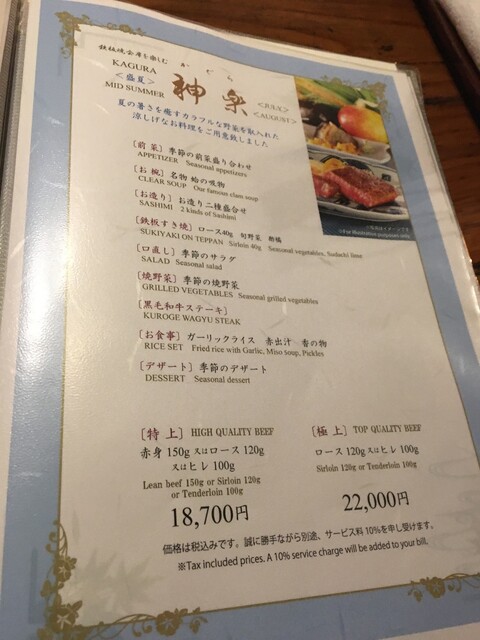 鉄板焼会席を楽しむ
か ぐ ら
KAGURA
神楽
<盛夏>
MID SUMMER
<JULY>
<AUGUST>
夏の暑さを癒すカラフルな野菜を取入れた
涼しげなお料理をご用意致しました
[前 菜] 季節の前菜盛り合わせ
APPETIZER Seasonal appetizers
[お 椀] 名物 蛤の吸物
CLEAR SOUP Our famous clam soup
[お造り] お造り二種盛合せ
SASHIMI 2 kinds of Sashimi
[鉄板すき焼] ロース40g 旬野菜 酢橘
SUKIYAKI ON TEPPAN Sirloin 40g Seasonal vegetables, Sudachi lime
[口直し] 季節のサラダ
SALAD Seasonal salad
[焼野菜] 季節の焼野菜
GRILLED VEGETABLES Seasonal grilled vegetables
[黒毛和牛ステーキ]
KUROGE WAGYU STEAK
[お食事] ガーリックライス 赤出汁 香の物
RICE SET Fried rice with Garlic, Miso soup, Pickles
[デザート] 季節のデザート
DESSERT Seasonal dessert
※写真はイメージです
※For illustrative purposes only.
[特 上] HIGH QUALITY BEEF
赤身 150g 又はロース 120g
又はヒレ 100g
Lean beef 150g or Sirloin 120g
or Tenderloin 100g
18,700円
[極 上] TOP QUALITY BEEF
ロース 120g 又はヒレ 100g
Sirloin 120g or Tenderloin 100g
22,000円
価格は税込みです。誠に勝手ながら別途、サービス料 10%を申し受けます。
※Tax included prices. A 10% service charge will be added to your bill.